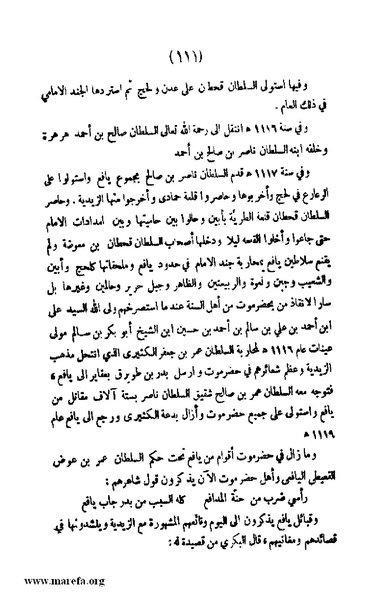 (١١١)
وفيها استولى السلطان قحطان على عدن ولحج ثم استردها الجند الامامي
في ذلك العام .
وفي سنة ١١١٦ ه انتقل الى رحمة الله تعالى السلطان صالح بن أحمد هرهرة
وخلفه ابنه السلطان ناصر بن صالح بن أحمد
وفي سنة ١١١٧ ه قدم السلطان ناصر بن صالح بمجموع يافع واستولوا على
الرعارع في لحج وأخربوها وحاصروا قلعة حمادى وأخرجوا منها الزيدية . وحاصر
السلطان قحطان قلعة الطرية بأبين وحالوا بين حاميتها وبين امدادات الامام
حتى جاعوا وأخلوا القلعه ليلا ودخلها أصحاب السلطان قحطان بن معوضة ولم
يقنع سلاطين يافع بمحاربة جند الامام في حدود يافع وملحقاتها كلحج وأبين
والشعيب وجبن ونعوة والربيعتين والظاهر وجبل حرير وحالمين وغيرها بل
ساروا لانقاذ من بحضرموت من أهل السنة عندما استصرخهم ولى الله السيد على
ابن أحمد بن علي بن سالم بن أحمد بن حسين ابن الشيخ أبو بكر بن سالم مولى
عينات عام ١١١٦ ه لمحاربة السلطان عمر بن جعفر الكثيرى الذي انتحل مذهب
الزيدية وعظم شعائرهم في حضرموت وارسل بدر بن طويرق بمقابر الى يافع ،
فتوجه معه السلطان عمر بن صالح شقيق السلطان ناصر بستة آلاف مقاتل من
يافع واستولى على جميع حضرموت وأزال بدعة الكثيرى ورجع الى يافع عام
١١١٩ ه
وما زال في حضرموت أقوام من يافع تحت حكم السلطان عمر بن عوض
القعيطي اليافعى وأهل حضرموت الآن يذكرون قول شاعرهم :
رأسي ضرب من حنة المدافع كله السبب من بدر جاب يافع
وقبائل يافع يذكرون الى اليوم وقائعهم المشهورة مع الزيدية وينشدونها في
قصائدهم ومغانيهم ، قال البكري من قصيدة له :
www.marefa.org